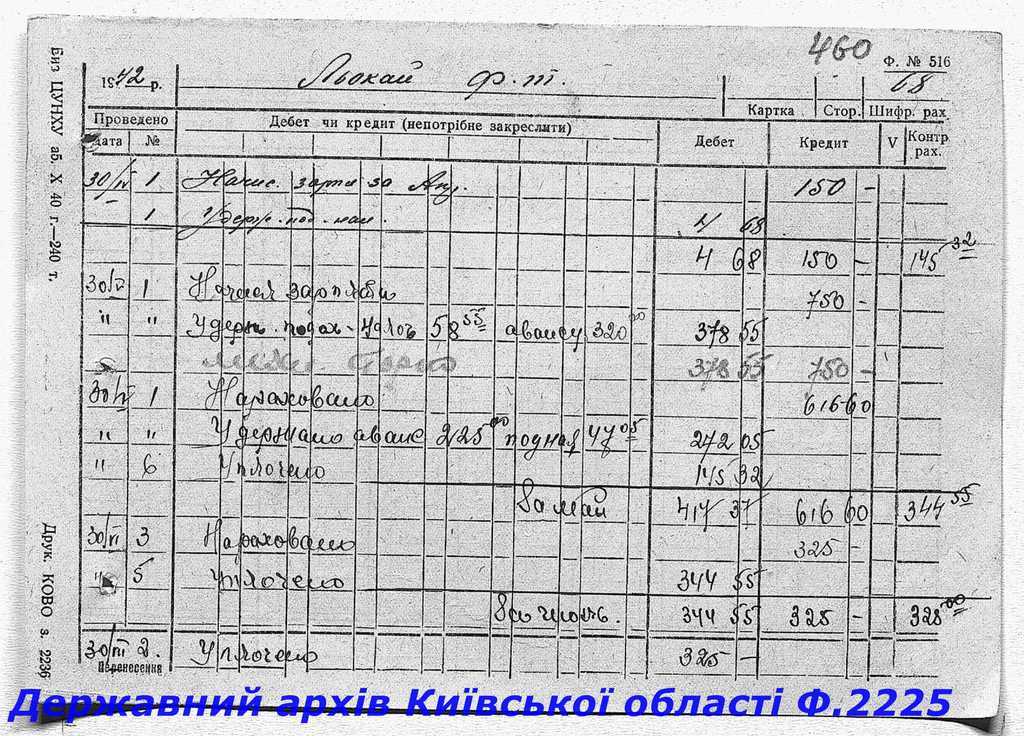 460
Ф. № 516
1942 р. Льокай Ф. Т. 68
Картка Стор. Шифр. рах.
Проведено Дебет чи кредит (непотрібне закреслити) Дебет Кредит V Контр. рах.
Дата №
30/IV 1 Начис. зарпл за Апр. 150 -
1 Удерж. под. нал. 4 68
4 68 150 - 145 32
30/ 1 Начисл зарплати 750 -
" " Удерж. подох - 58 55 авансу 320 00 378 55
378 55 750 -
30/ 1 Нараховано 616 60
" " Удержано аванс 225 00 подная 47 05 272 05
" 6 Уплочено 145 32
За май 417 37 616 60 344 55
30/VI 3 Нараховано 325 -
" 5 Уплочено 344 55
За 344 55 325 - 325 00
30/ 2. Уплочено 325 -
Перенесення
Биз ЦУНХУ аб. X 40 г.—240 т.
Друк. КОВО з. 2236
Державний архів Київської області Ф.2225